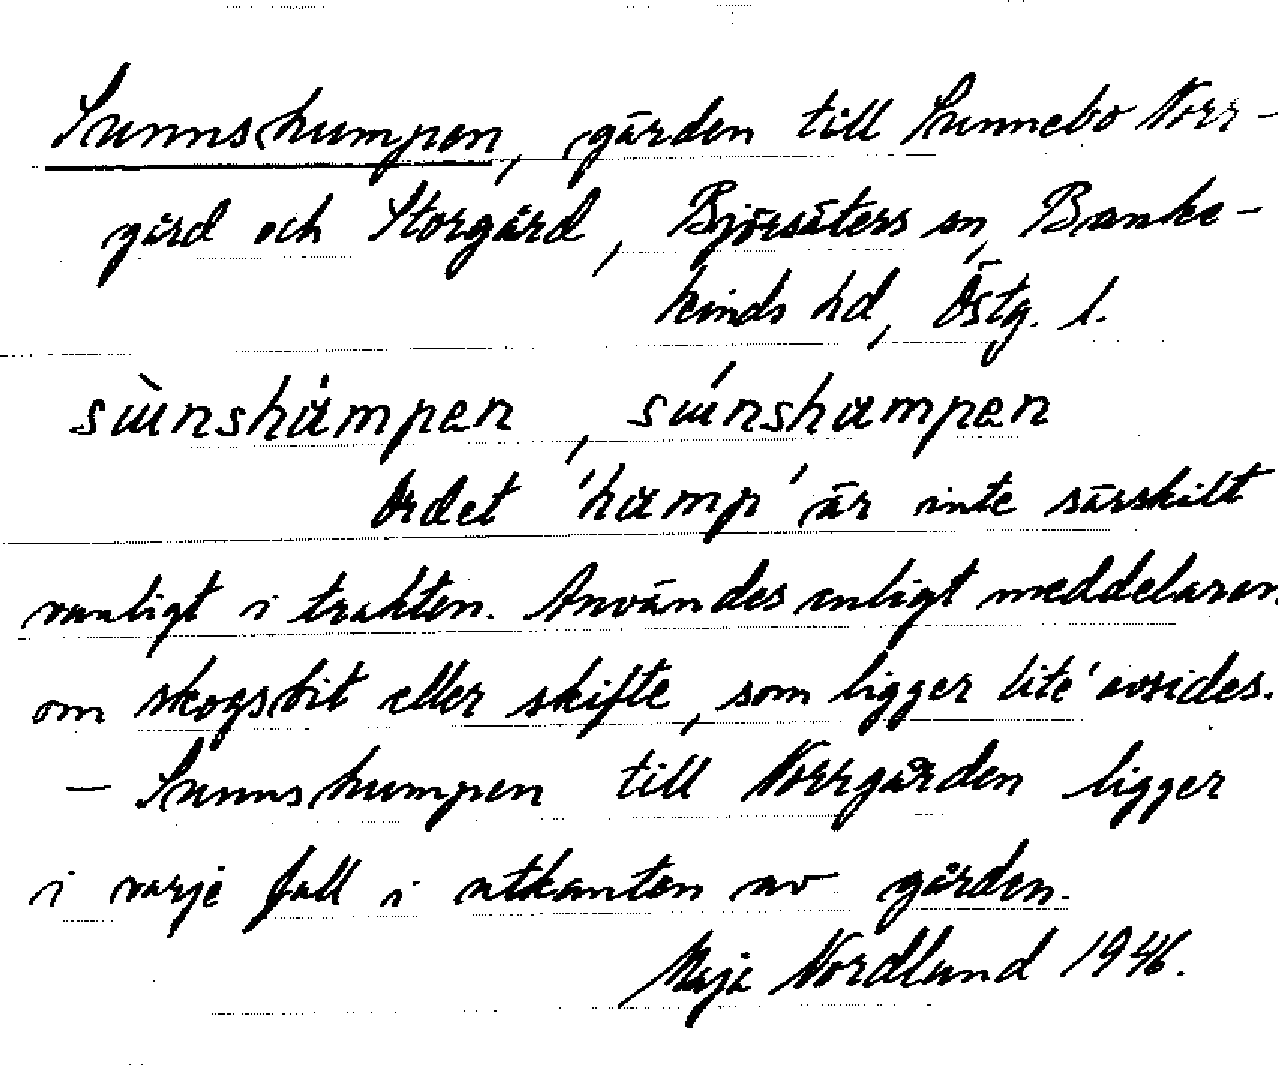 Sunnshumpen, gärden till Sunnebo Norr-
gård och Storgård, Björsäters sn, Banke-
kinds hd, Östg. l.
sɯ̀nshámpen , sɯ́nshɑmpen
Ordet 'hɑmp' är inte särskilt
vanligt i trakten. Användes enligt meddelaren
om skogsbit eller skifte, som ligger lite' avsides.
— Sunnshumpen till Norrgården ligger
i varje fall i utkanten av gården.
Maja Nordlund 1946.